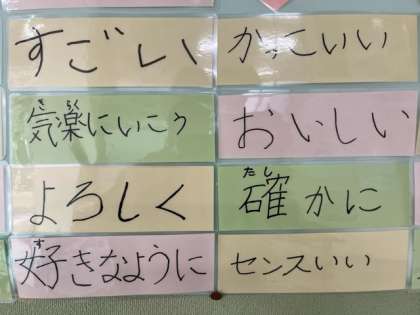 すごい
かっこいい
気楽にいこう
おいしい
よろしく
確かに
好きなように
センスいい